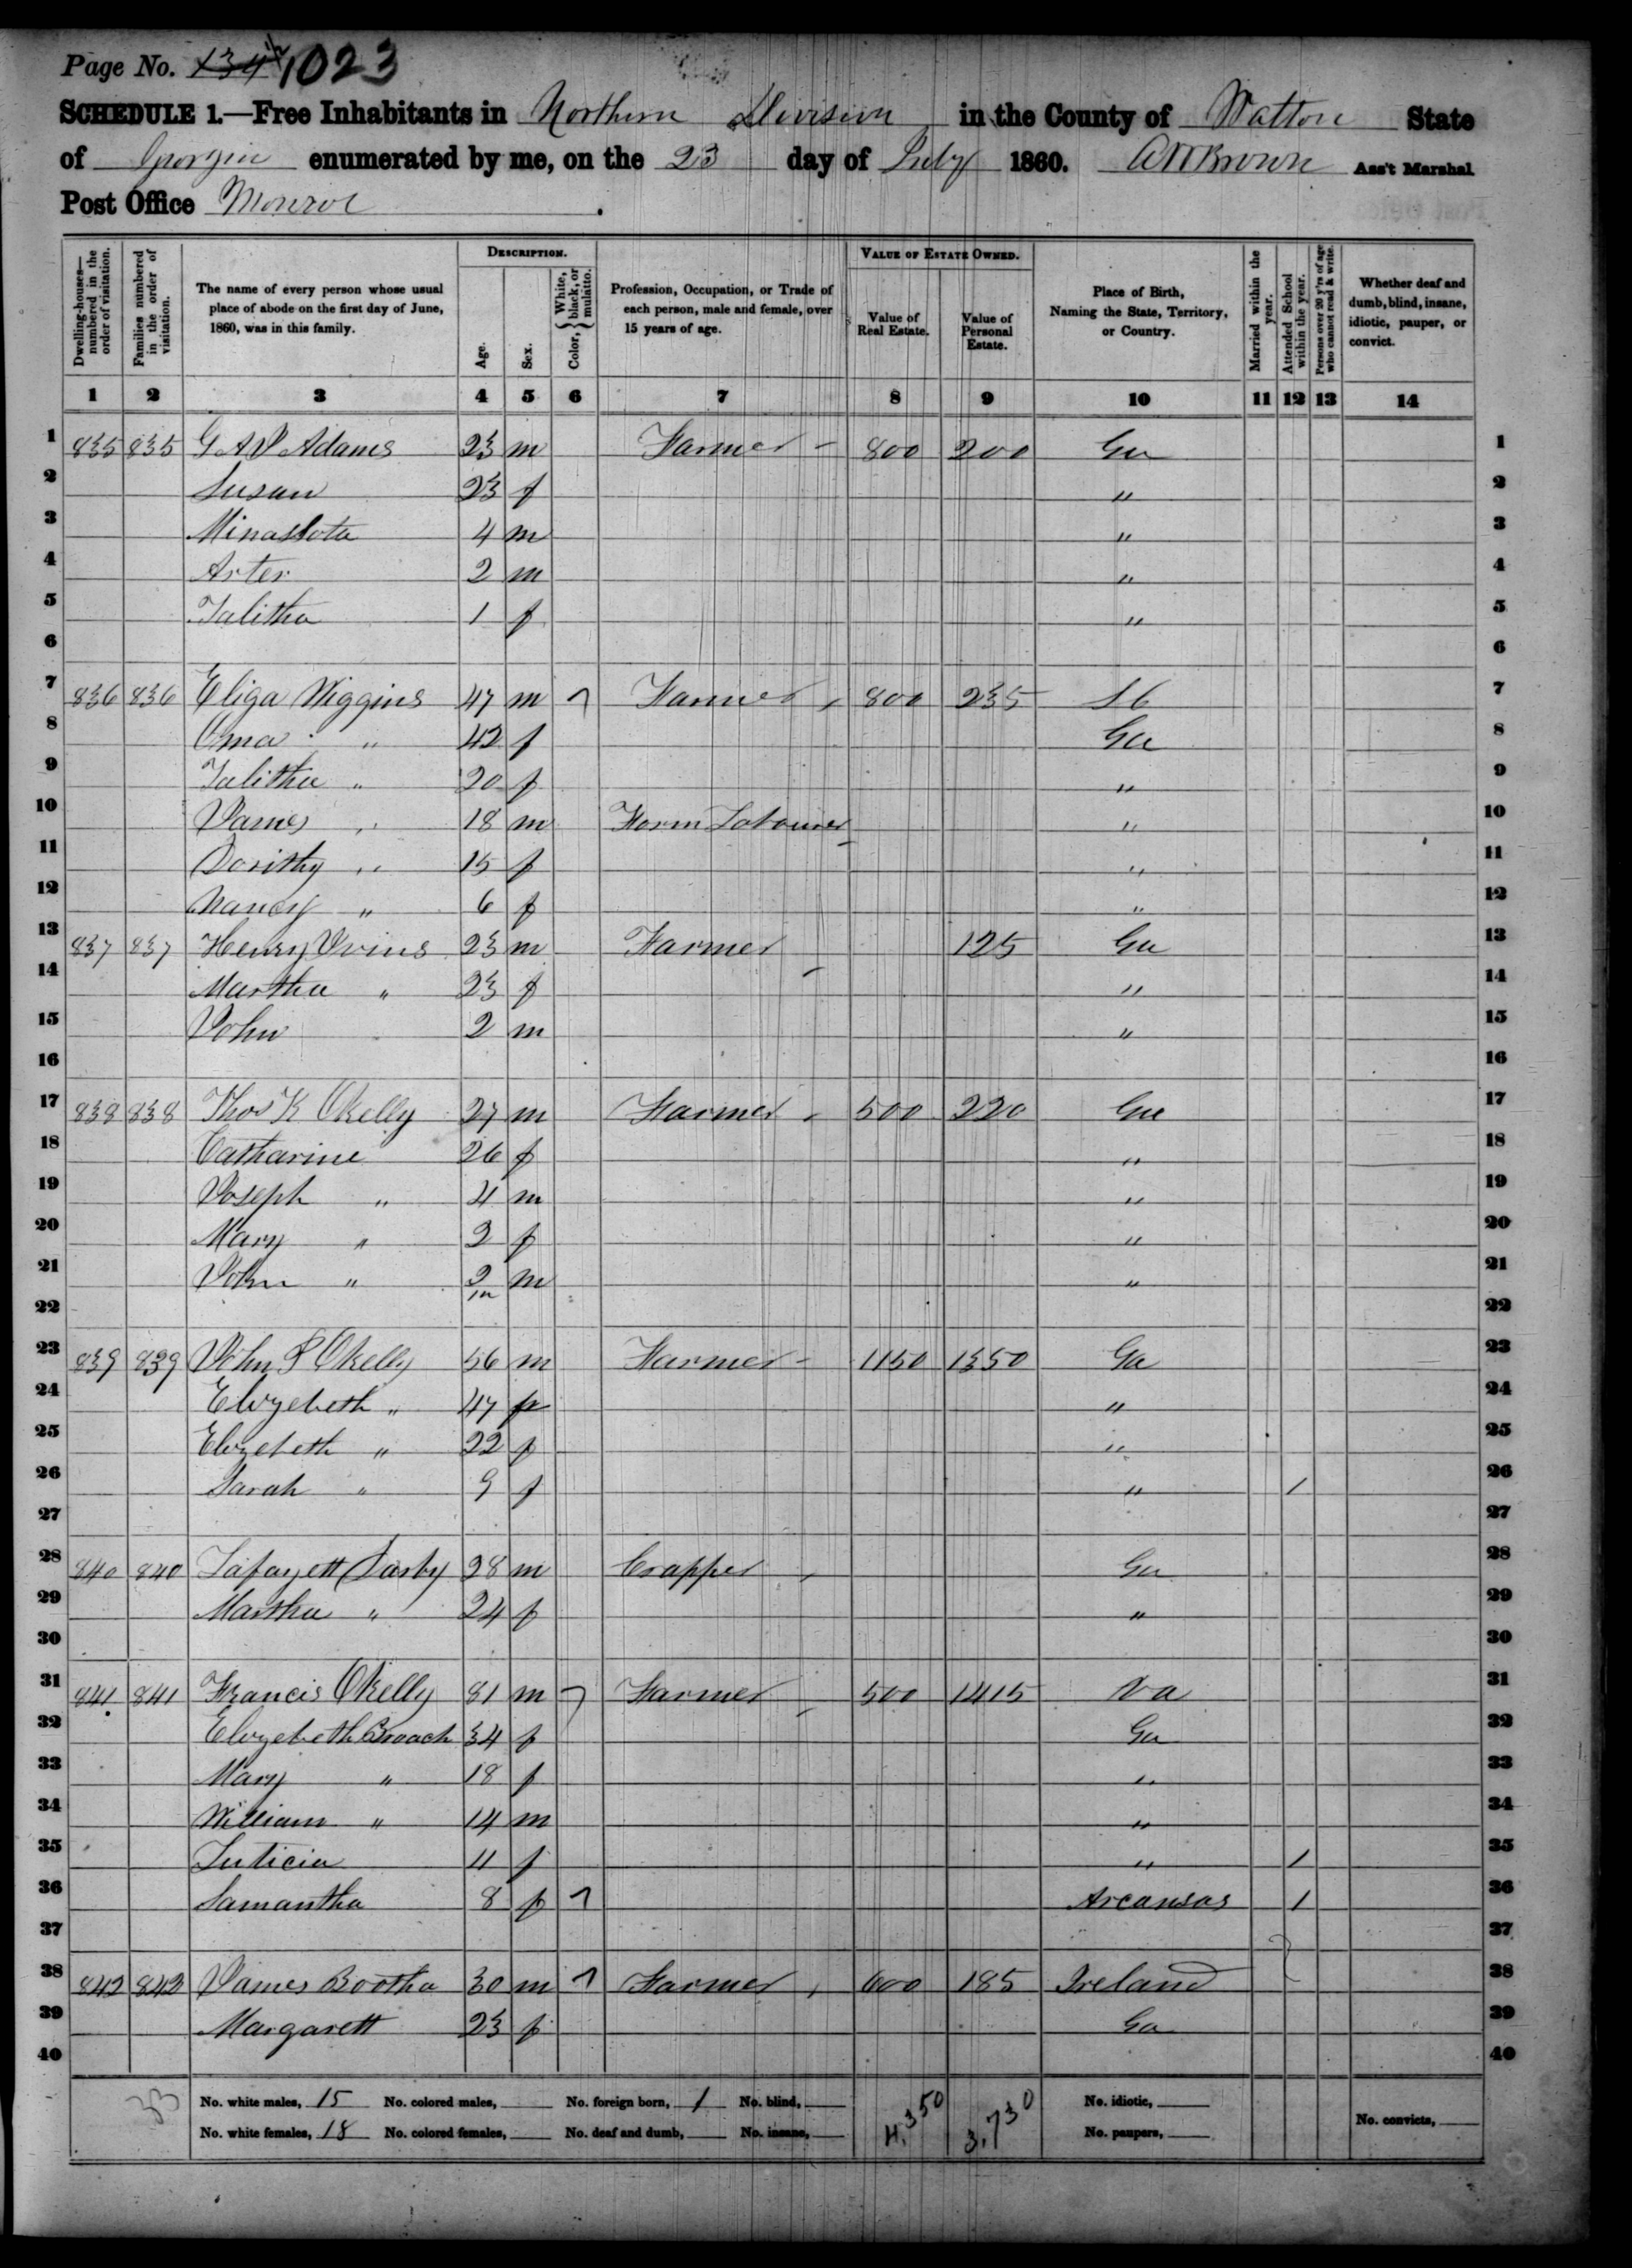 Page No. 134 1023
SCHEDULE 1.—Free Inhabitants in Northern Division in the County of Walton State
of Georgia enumerated by me, on the 23 day of July 1860. Brown Ass't Marshal
Post Office Monroe
Dwelling-houses—numbered in the order of visitation.
Families numbered in the order of visitation.
The name of every person whose usual place of abode on the first day of June, 1860, was in this family.
DESCRIPTION.
Age.
Sex.
Color, { White, black, or mulatto.
Profession, Occupation, or Trade of each person, male and female, over 15 years of age.
VALUE OF ESTATE OWNED.
Value of Real Estate.
Value of Personal Estate.
Place of Birth, Naming the State, Territory, or Country.
Married within the year.
Attended School within the year.
Persons over 20 y'rs of age who cannot read & write.
Whether deaf and dumb, blind, insane, idiotic, pauper, or convict.
1 2 3 4 5 6 7 8 9 10 11 12 13 14
1 835 835 G A P Adams 23 m Farmer 800 200 Ga 1
2 Susan 23 f " 2
3 Minassota 4 m " 3
4 Arter 2 m " 4
5 Talitha 1 f " 5
6 6
7 836 836 Eliga Wiggins 47 m Farmer 800 235 S C 7
8 Oma " 42 f Ga 8
9 Talitha " 20 f " 9
10 James " 18 m Farm Labourer " 10
11 Dorithy " 15 f " 11
12 Nancy " 6 f " 12
13 837 837 Henry Ivins 23 m Farmer 125 Ga 13
14 Martha " 23 f " 14
15 John 2 m " 15
16 16
17 838 838 Thos K Okelly 27 m Farmer 500 220 Ga 17
18 Catharine 26 f " 18
19 Joseph " 4 m " 19
20 Mary " 2 f " 20
21 John " 2/m m " 21
22 22
23 839 839 John P Okelly 56 m Farmer 1150 1350 Ga 23
24 Elizebeth " 47 f " 24
25 Elizebeth " 22 f " 25
26 Sarah " 9 f " / 26
27 27
28 840 840 Lafayett Darby 28 m Crapper Ga 28
29 Martha " 24 f " 29
30 30
31 841 841 Francis Okelly 81 m Farmer 500 1415 Va 31
32 Elizebeth Broach 34 f Ga 32
33 Mary " 18 f " 33
34 William " 14 m " 34
35 Luticia 11 f " / 35
36 Samantha 8 f Arcansas / 36
37 37
38 842 842 James Bootha 30 m Farmer 600 185 Ireland 38
39 Margarett 23 f Ga 39
40 40
33 No. white males, 15 No. colored males, No. foreign born, 1 No. blind, 4,350 3,730 No. idiotic,
No. white females, 18 No. colored females, No. deaf and dumb, No. insane, No. paupers, No. convicts,